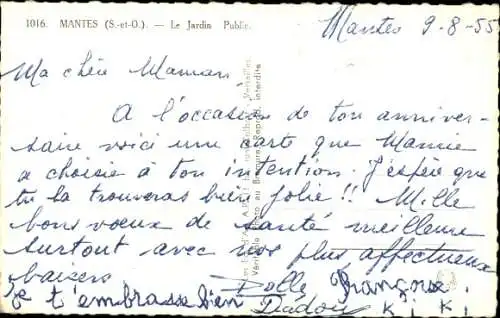 1016. MANTES (S.-et-O.). — Le Jardin Public.
Mantes 9-8-55
Ma chère Maman
A l'occasion de ton anniver-
saire voici une carte que Mamie
a choisie à ton intention. J'espère que
tu la trouveras bien jolie !! Mille
bons voeux de santé meilleure
surtout avec nos plus affectueux
baisers
Dolle Françoise.
Je t'embrasse bien Dadou Kiki